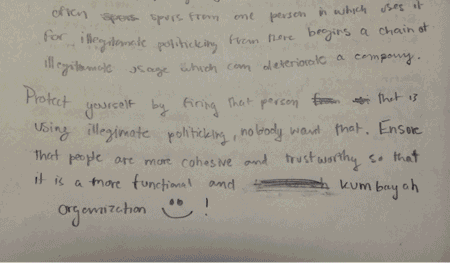 often spors spors from one person in which uses it
for illegitamate politicking from here begins a chain of
illegitamate usage which can deteriorate a company.
Protect yourself by firing that person that is
using illegimate politicking, nobody want that. Ensure
that people are more cohesive and trustworthy so that
it is a more functional and kumbayah
organization !